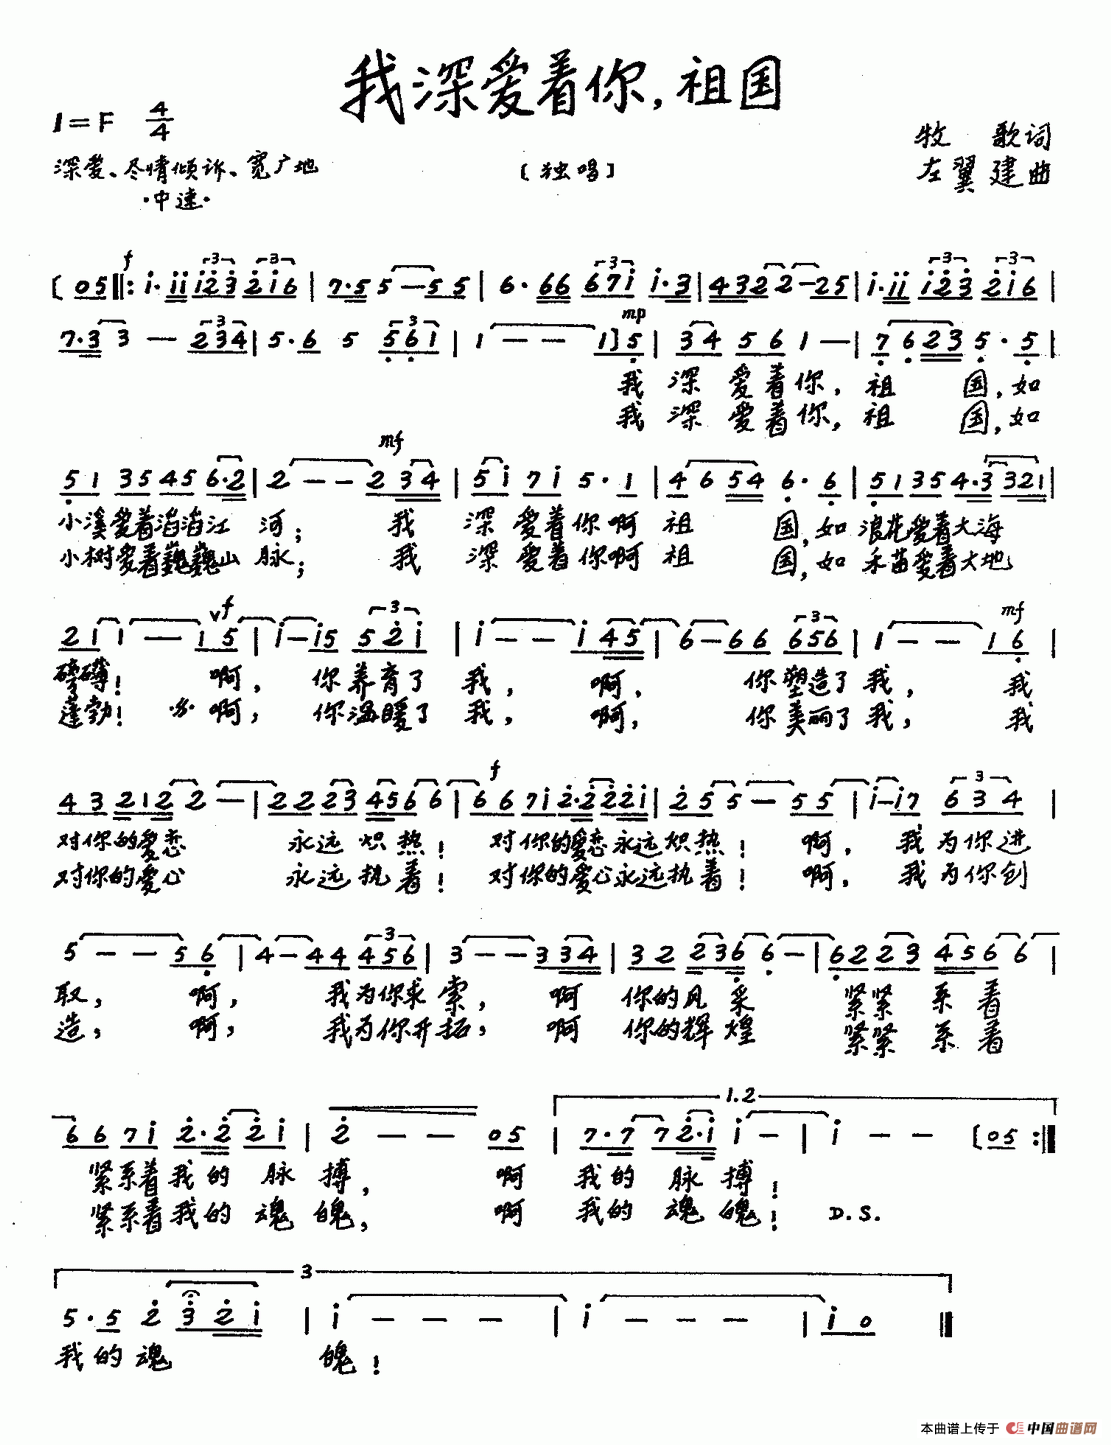 我深爱着你，祖国
1=F 4/4
牧 歌词
深爱、尽情倾诉、宽广地
〔独唱〕
左翼建曲
·中速·
f
〔05‖: i·ii i23 2i6 | 7·5 5 — 5 5 | 6·66 67i i·3 | 4322 2 — 25 | i·ii i23 2i6 |
mp
7·3 3 — 234 | 5·6 5 561 | 1 — — 1〕5 | 34 56 1 — | 7623 5·5 |
我 深 爱着你，祖 国，如
我 深 爱着你，祖 国，如
mf
51 35 45 6·2 | 2 — — 234 | 5i 7i 5·1 | 46 54 6·6 | 51354·3 321 |
小溪爱着滔滔江 河； 我 深 爱着你啊 祖 国，如 浪花爱着大海
小树爱着巍巍山 脉； 我 深 爱着你啊 祖 国，如 禾苗爱着大地
f mf
2i 1 — 15 | i — i5 52i | i — — i45 | 6 — 66 656 | 1 — — 16 |
磅礴！ 啊， 你养育了 我， 啊， 你塑造了 我， 我
蓬勃！ 啊， 你温暖了 我， 啊， 你美丽了 我， 我
f
43 212 2 — | 22 23 456 6 | 66 7i 2·2 22i | 25 5 — 55 | i — i7 634 |
对你的爱恋 永远 炽 热！ 对你的爱恋永远炽热！ 啊， 我 为你进
对你的爱心 永远 执 着！ 对你的爱心永远执着！ 啊， 我 为你创
5 — — 56 | 4 — 44 456 | 3 — — 334 | 32 236 6 — | 622 23 456 6 |
取， 啊， 我为你求 索， 啊 你的风 采 紧紧 系 着
造， 啊， 我为你开 拓， 啊 你的辉 煌 紧紧 系 着
1.2
66 7i 2·2 2i | 2 — — 05 | 7·7 72·i i — | i — — 〔05 :‖
紧系着我的 脉 搏， 啊 我的 脉 搏！
紧系着我的 魂 魄， 啊 我的 魂 魄！ D.S.
3
5·5 2 32i | i — — — | i — — — | i0 ‖
我的魂 魄！
本曲谱上传于 中国曲谱网